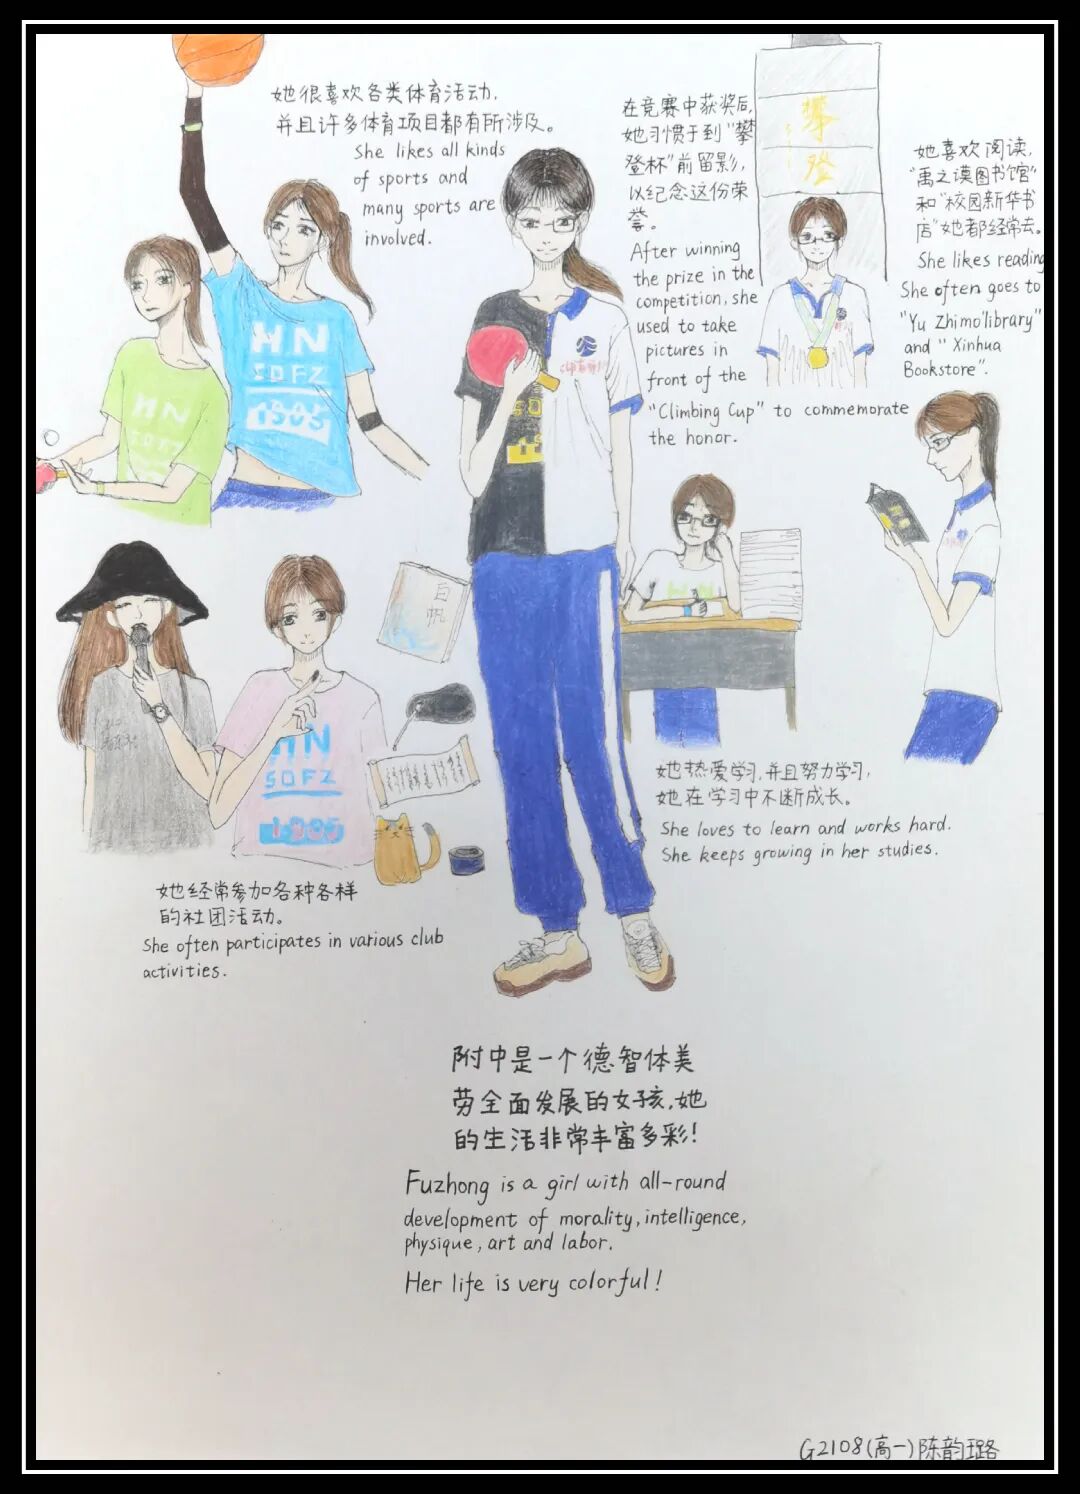 她很喜欢各类体育活动,
并且许多体育项目都有所涉及。
She likes all kinds
of sports and
many sports are
involved.
在竞赛中获奖后,
她习惯于到"攀
登杯"前留影,
以纪念这份荣
誉。
After winning
the prize in the
competition, she
used to take
pictures in
front of the
"Climbing Cup" to commemorate
the honor.
攀
登
她喜欢阅读,
"禹之谟图书馆"
和"校园新华书
店"她都经常去。
She likes reading
She often goes to
"Yu Zhimo"library"
and "Xinhua
Bookstore".
HN
SDFZ
HN
SDFZ
1905
白
帆
HN
SDFZ
1905
她热爱学习,并且努力学习,
她在学习中不断成长。
She loves to learn and works hard.
She keeps growing in her studies.
她经常参加各种各样
的社团活动。
She often participates in various club
activities.
附中是一个德智体美
劳全面发展的女孩,她
的生活非常丰富多彩!
Fuzhong is a girl with all-round
development of morality, intelligence,
physique, art and labor.
Her life is very colorful!
G2108(高一)陈韵璐